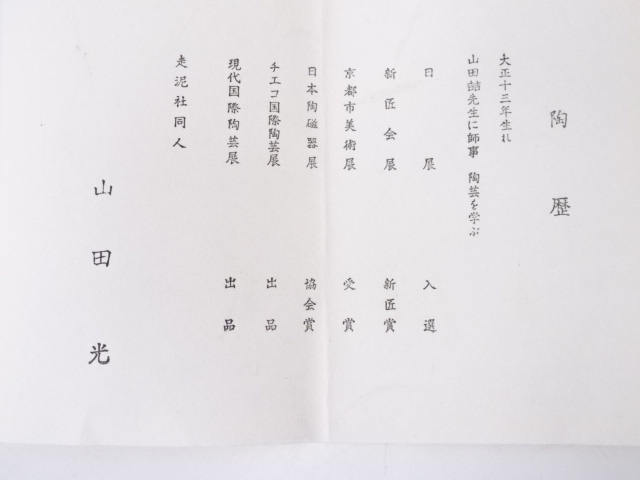 陶歴
大正十三年生れ
山田喆先生に師事 陶芸を学ぶ
日展 入選
新匠会展 新匠賞
京都市美術展 受賞
日本陶磁器展 協会賞
チエコ国際陶芸展 出品
現代国際陶芸展 出品
走泥社同人
山田光